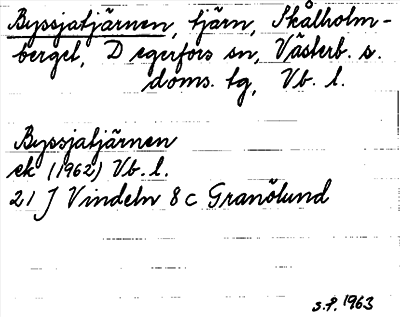 Byssjatjärnen, tjärn, Skålholm-
berget, Degerfors sn, Västerb. s.
doms. tg, Vb. l.
Byssjatjärnen
ek (1962) Vb. l.
21 J Vindeln 8c Granölund
S.P. 1963